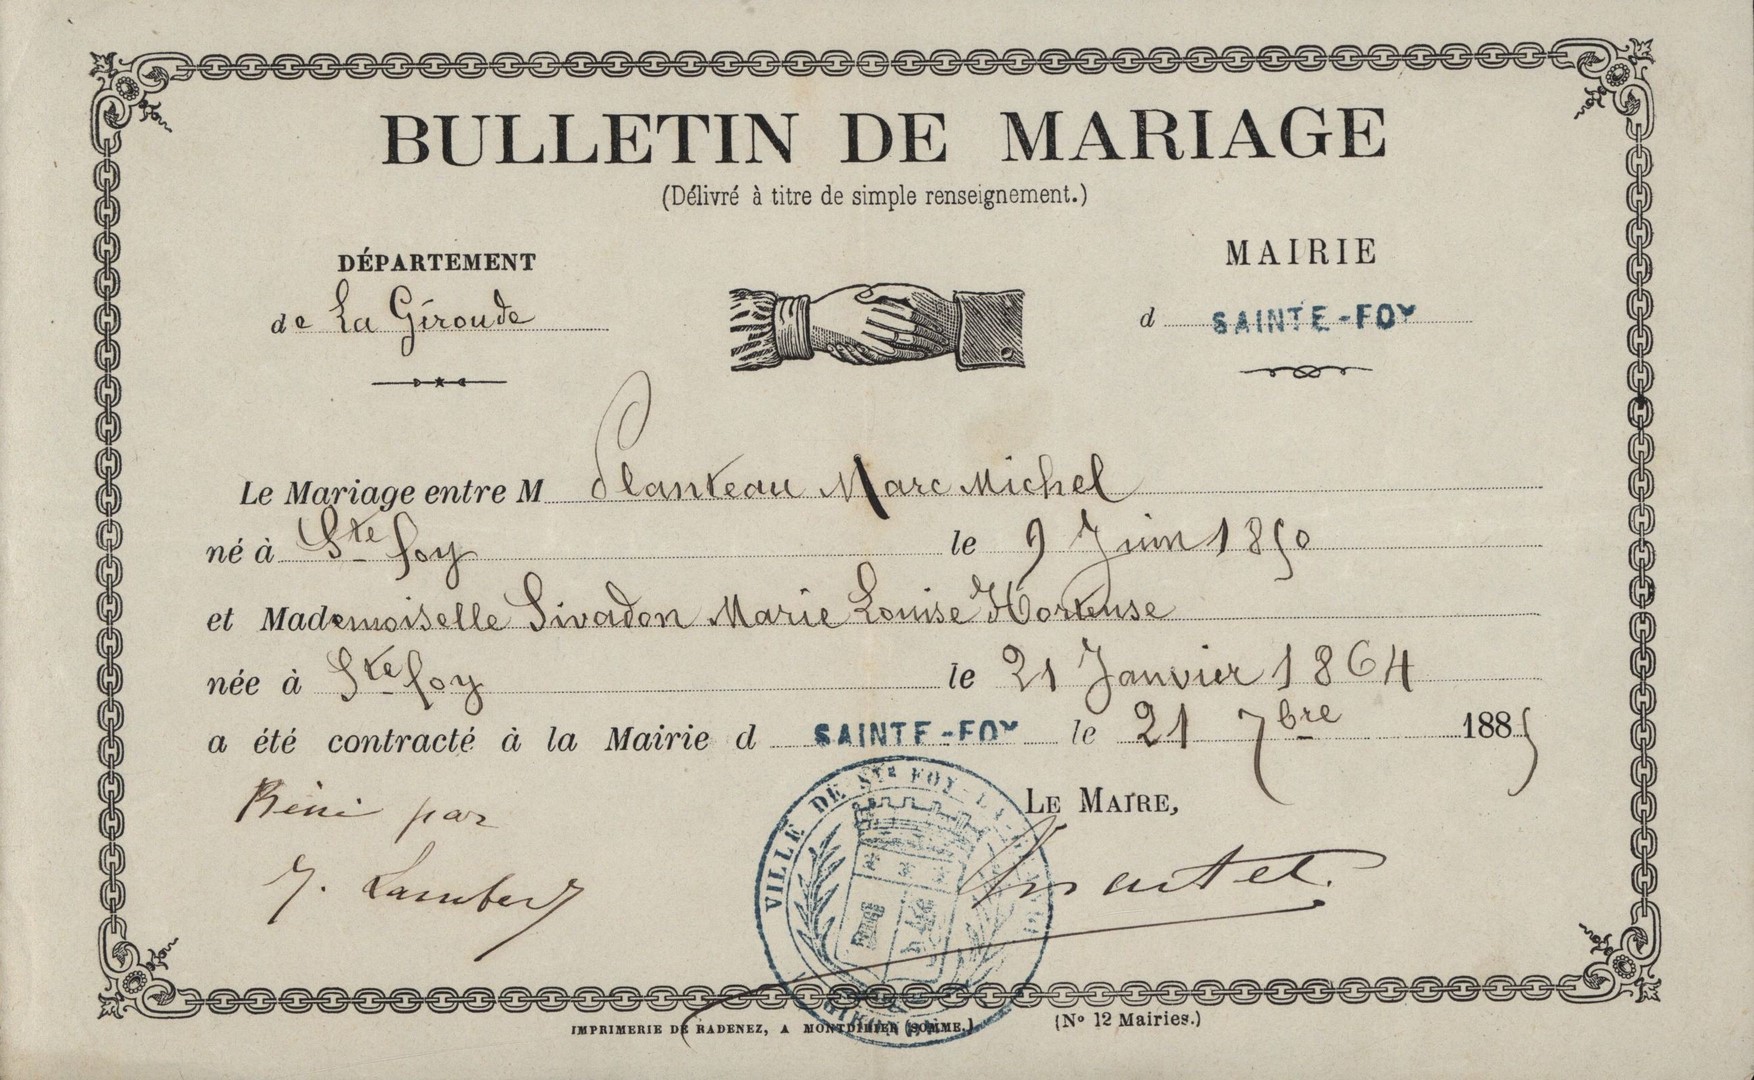 BULLETIN DE MARIAGE
(Délivré à titre de simple renseignement.)
DÉPARTEMENT
de La Gironde
MAIRIE
d SAINTE-FOY
Le Mariage entre M Planteau Marc Michel
né à Ste foy le 9 Juin 1850
et Mademoiselle Sivadon Marie Louise Hortense
née à Ste foy le 21 Janvier 1864
a été contracté à la Mairie d SAINTE-FOY le 21 7bre 1885
Béni par
J. Lambert
LE MAIRE,
Martet
VILLE DE STE FOY-LA-GRANDE
GIRONDE
IMPRIMERIE DE RADENEZ, A MONTDIDIER (SOMME.)
(No 12 Mairies.)